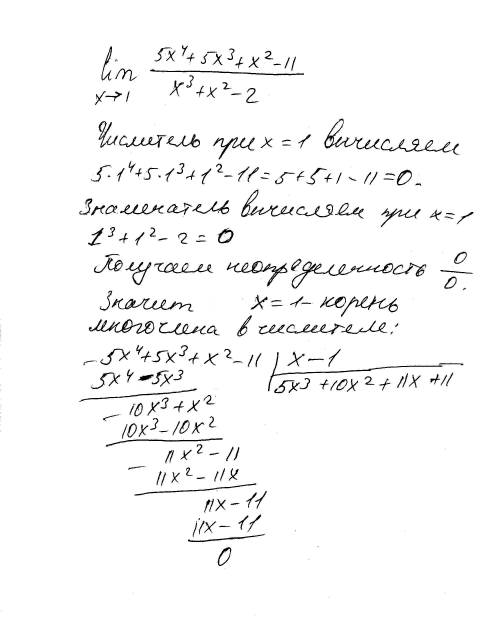 lim 5x⁴+5x³+x²-11
x→1 x³+x²-2
Числитель при x=1 вычисляем
5·1⁴+5·1³+1²-11=5+5+1-11=0.
Знаменатель вычисляем при x=1
1³+1²-2=0
Получаем неопределенность 0/0.
Значит x=1- корень
многочлена в числителе:
-5x⁴+5x³+x²-11 | x-1
5x⁴-5x³ 5x³+10x²+11x+11
-10x³+x²
10x³-10x²
11x²-11
-11x²-11x
11x-11
11x-11
0